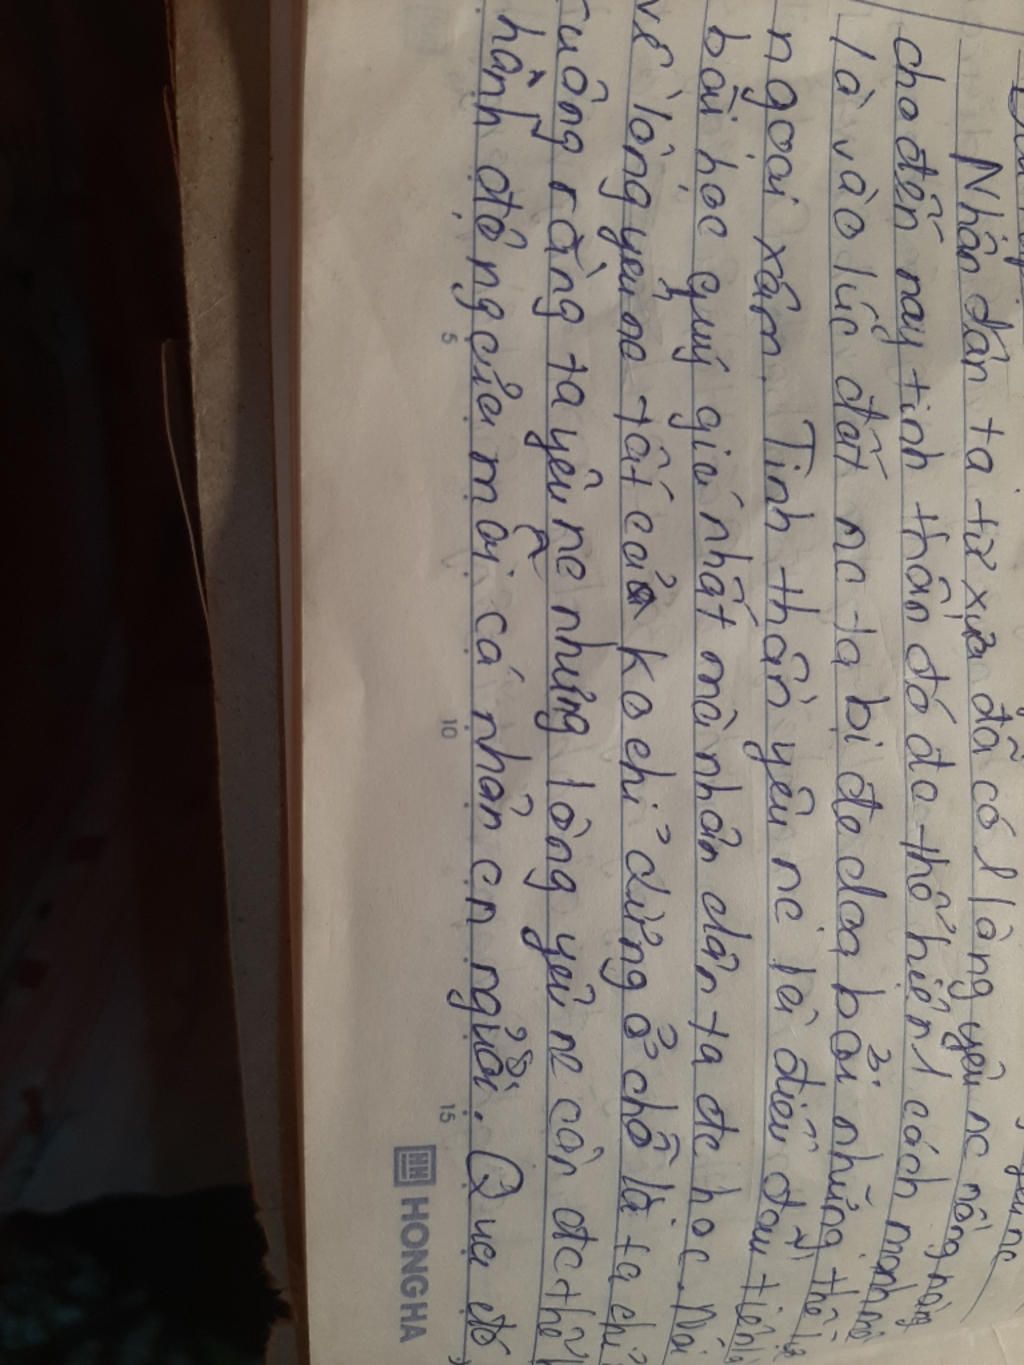 yêu nc
Nhân dân ta từ xưa đã có 1 lòng yêu nc nồng nàng
cho đến nay tinh thần đó đc thể hiện 1 cách mạnh mẽ
là vào lúc đất nc ta bị đe doạ bởi những thế lực
ngoại xâm. Tinh thần yêu nc là điều đầu tiên là
bài học quý giá nhất mà nhân dân ta đc học. Nói
về lòng yêu nc tất cả ko chỉ dừng ở chỗ là ta chỉ
rằng ta yêu nc nhưng lòng yêu nc còn đc thể
hành động của mỗi cá nhân cn người. Qua đó
5
10
15
HH HONG HA